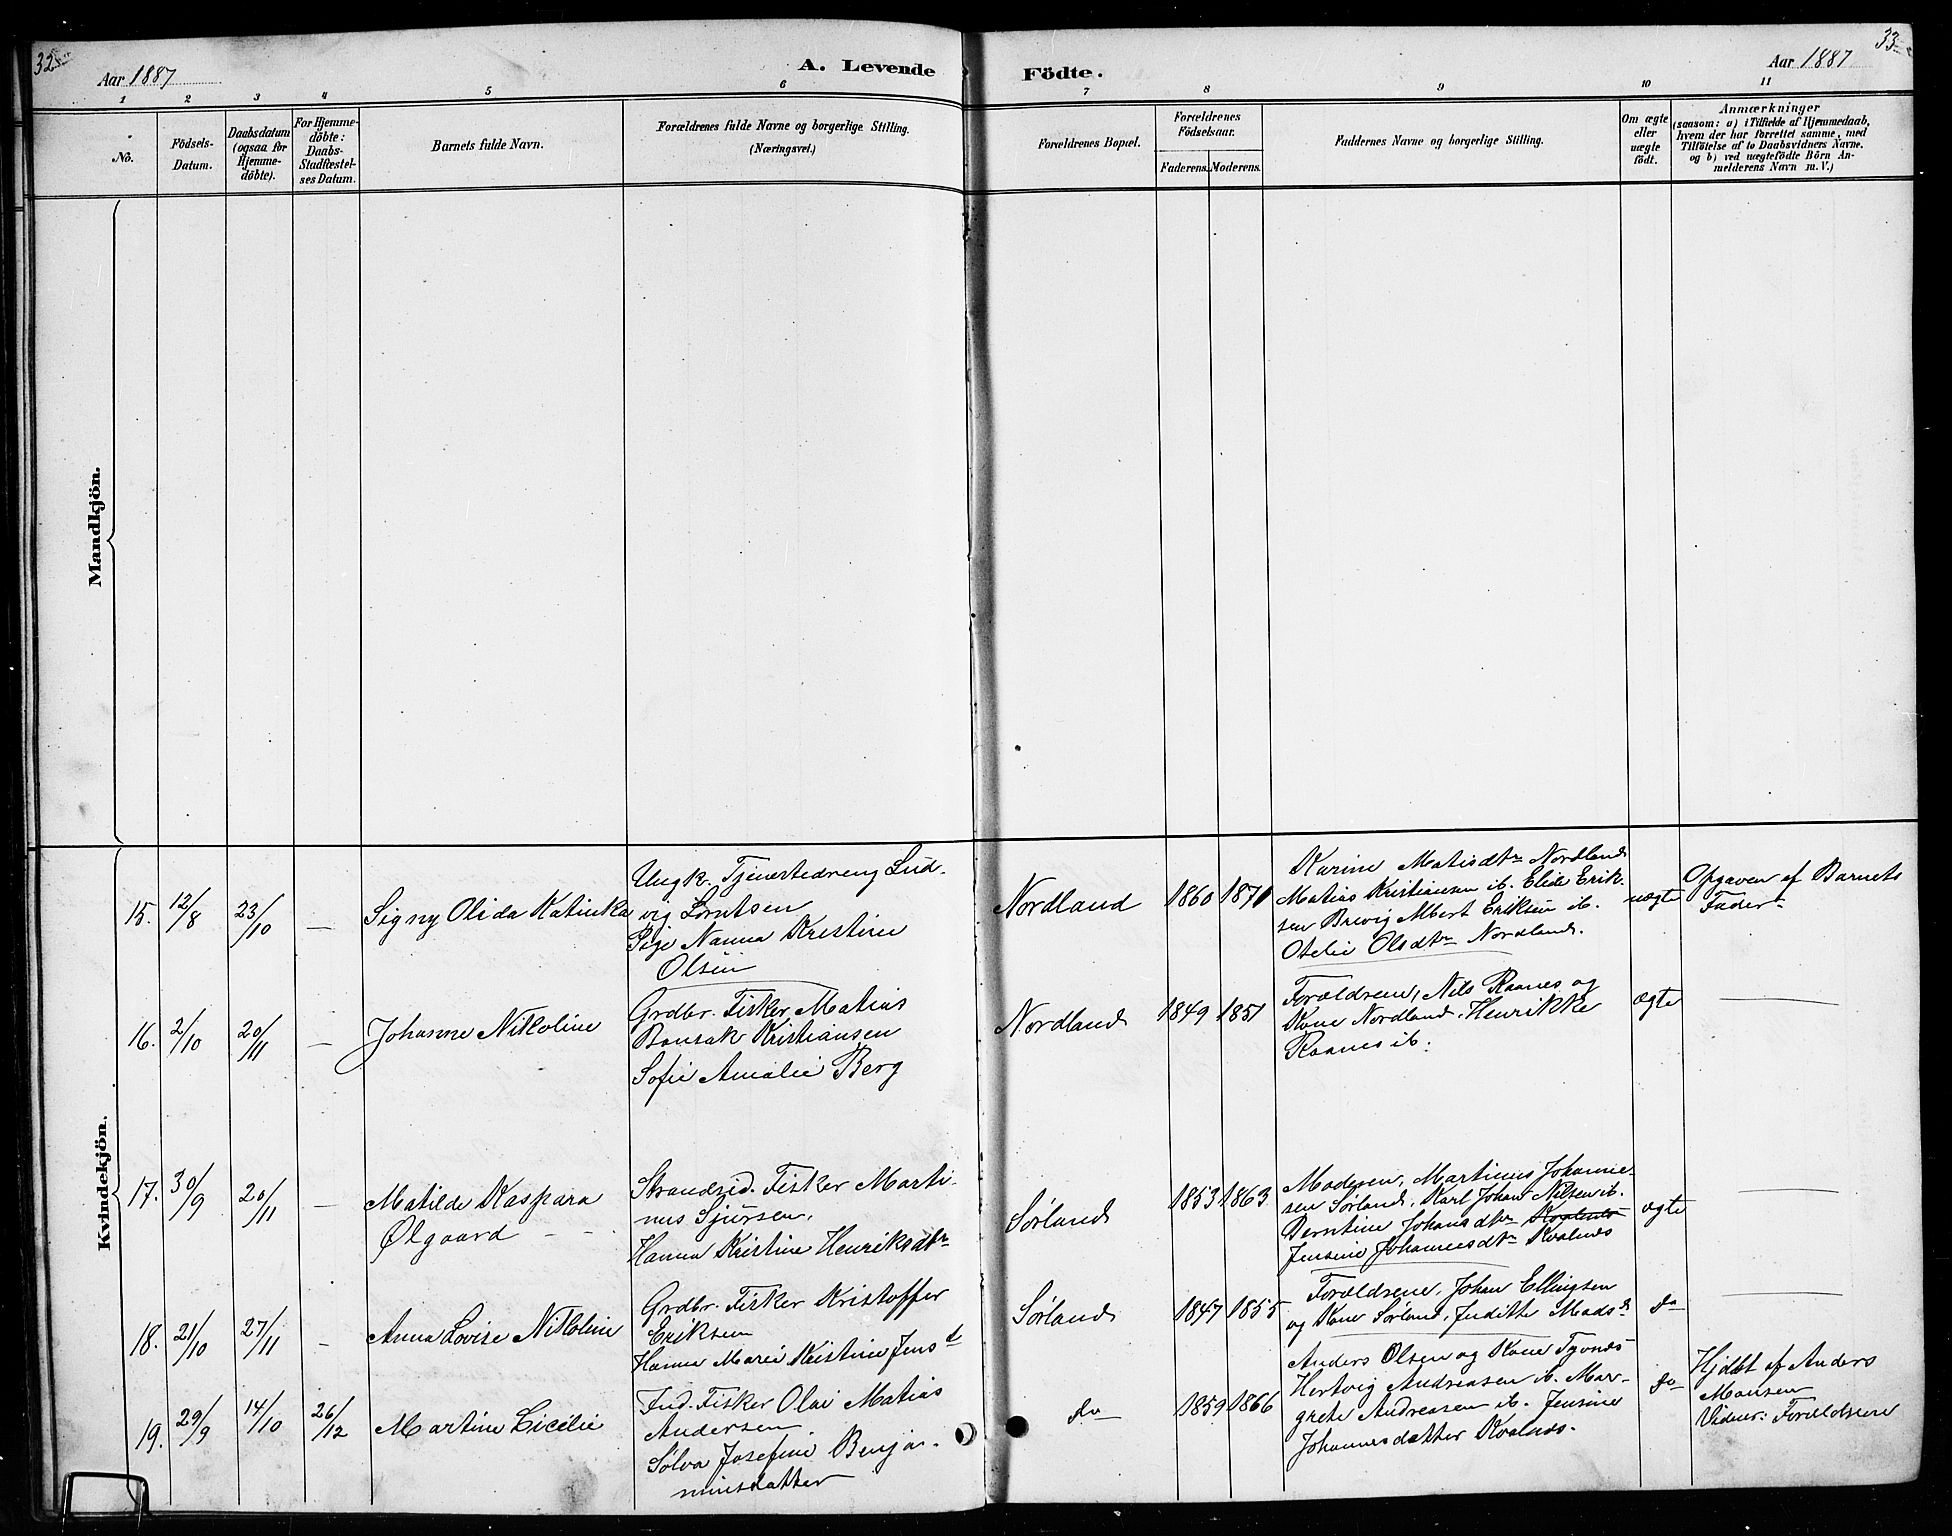 32
33
Aar 1887
A. Levende
Födte.
Aar 1887
1
2
3
4
5
6
7
8
9
10
11
No.
Födsels-
Datum.
Daabsdatum
(ogsaa for
Hjemme-
döbte).
For Hjemme-
döbte:
Daabs-
Stadfæstel-
ses Datum.
Barnets fulde Navn.
Forældrenes fulde Navne og borgerlige Stilling.
(Næringsvei.)
Forældrenes Bopæl.
Forældrenes
Födselsaar.
Faderens.
Moderens.
Faddernes Navne og borgerlige Stilling.
Om ægte
eller
uægte
födt.
Anmærkninger
(saasom: a) i Tilfælde af Hjemmedaab,
hvem der har forrettet samme, med
Tilföielse af to Daabsvidners Navne.
og b) ved uægtefödte Börn An-
melderens Navn m. V.)
Mandkjön.
Kvindekjön.
15.
12/8
23/10
—
Signy Olida Katinka
Ungk. Tjenestedreng Lud-
vig Lorntsen
Pige Nanna Kristine
Olsen
Nordland
1860
1871
Karine Matisdtr Nordland
Matias Kristiansen ib. Elida Erik-
sen Brevig Albert Eriksen ib.
Otelie Olsdtr Nordland.
uægte
Opgaven af Barnets
Fader
16.
2/10
20/11
—
Johanne Nikoline
Grdbr. Fisker Matias
Bonsak Kristiansen
Sofie Amalie Berg
Nordland
1849
1851
Forældrene, Nils Raanes og
Kone Nordland. Henrikke
Raanes ib.
ægte
—
17.
30/9
20/11
—
Matilde Kaspara
Ølgaard
Strandsid. Fisker Marti-
nus Sjursen,
Hanna Kristine Henriksdtr
Sørland
1853
1863
Moderen, Martinus Johanne-
sen Sørland, Karl Johan Nilsen ib.
Berntine Johansdtr Kvalnes
Jensine Johannesdtr Kvalnes
ægte
—
18.
21/10
27/11
—
Anna Lovise Nikoline
Grdbr. Fisker Kristoffer
Eriksen
Hanna Marie Kristine Jensd
Sørland
1847
1855
Forældrene, Johan Ellingsen
og Kone Sørland, Judithe Madsd
do
—
19.
29/9
14/10
26/12
Martine Cicelie
Ind. Fisker Olai Matias
Andersen
Sølva Josefine Benja-
minsdatter
do
1859
1866
Anders Olsen og Kone Tyvnes
Hertvig Andreasen ib. Mar-
grete Andreasen ib. Jensine
Johannesdatter Kvalnes.
do
Hjdøbt af Anders
Monsen
Vidner: Forældrene